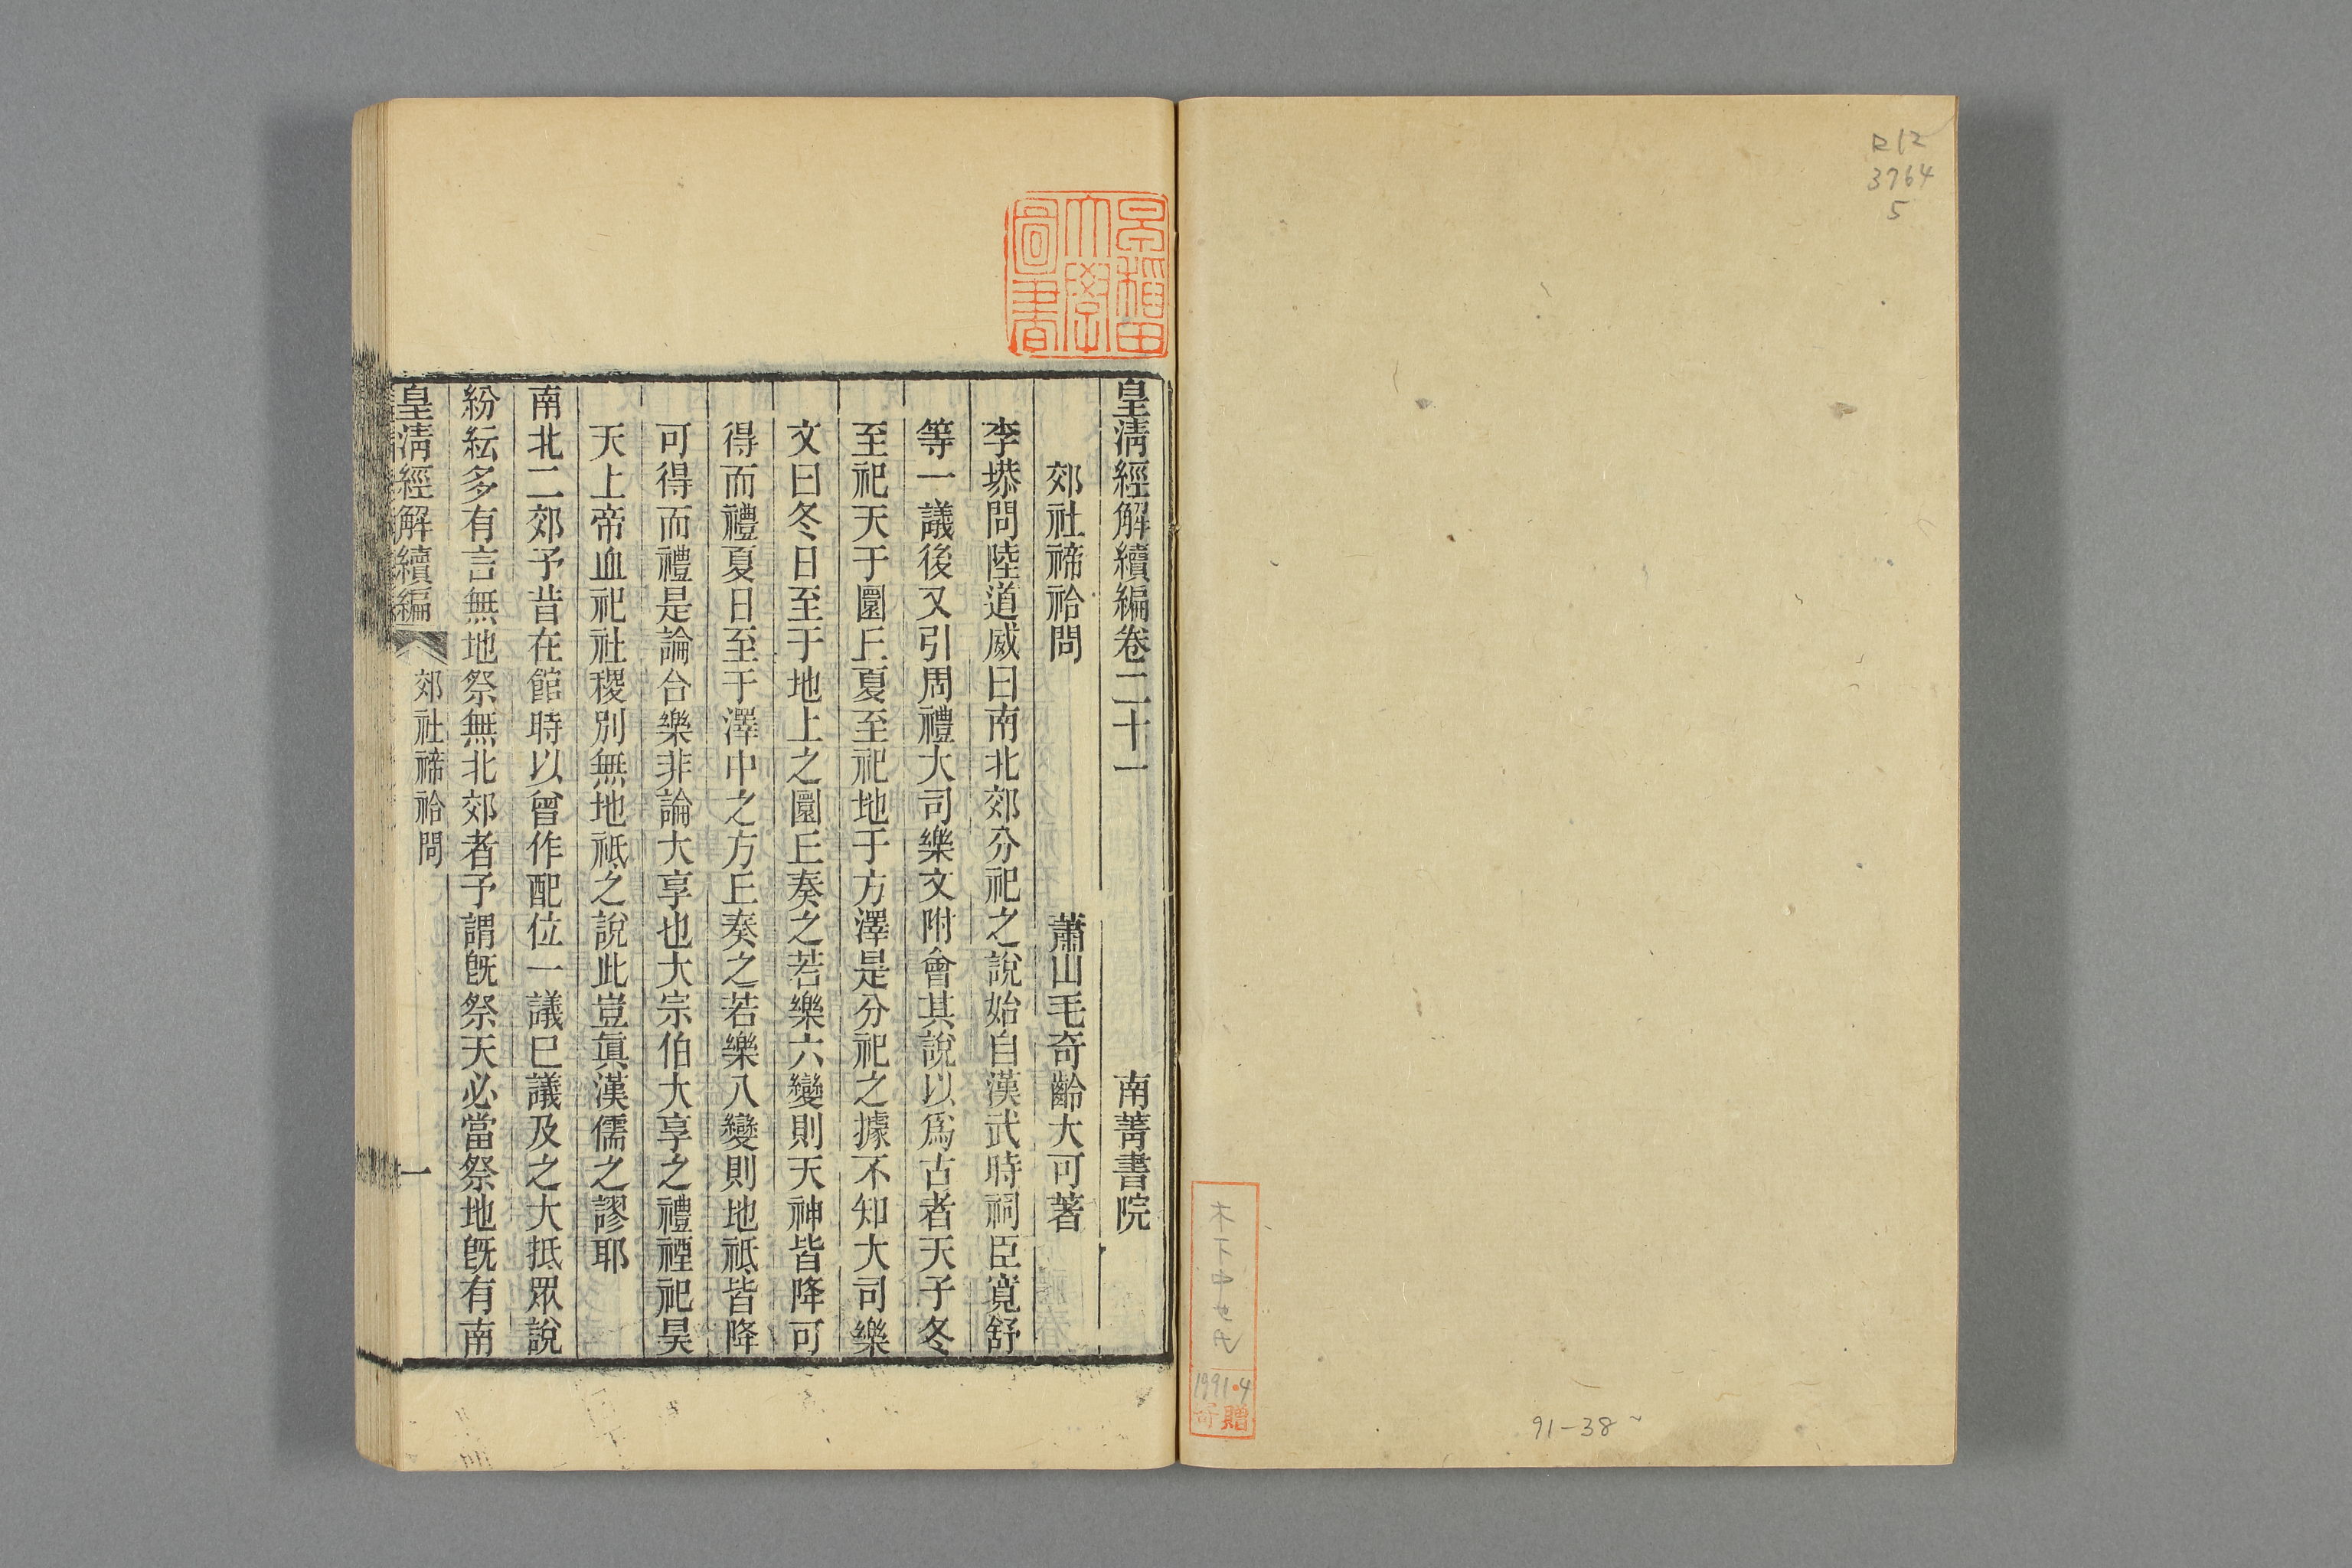 R12
3764
5
木下
1991.4
寄贈
91-38
早稲田
大學
圖書
皇淸經解續編卷二十一
南菁書院
郊社禘祫問
蕭山毛奇齡大可著
李塨問陸道威曰南北郊分祀之說始自漢武時祠臣寬舒
等一議後又引周禮大司樂文附會其說以爲古者天子冬
至祀天于圜丘夏至祀地于方澤是分祀之據不知大司樂
文曰冬日至于地上之圜丘奏之若樂六變則天神皆降可
得而禮夏日至于澤中之方丘奏之若樂八變則地祇皆降
可得而禮是論合樂非論大享也大宗伯大享之禮禋祀昊
天上帝血祀社稷別無地祇之說此豈眞漢儒之謬耶
南北二郊予昔在館時以曾作配位一議巳議及之大抵眾說
紛紜多有言無地祭無北郊者予謂旣祭天必當祭地旣有南
皇淸經解續編
郊社禘祫問
一